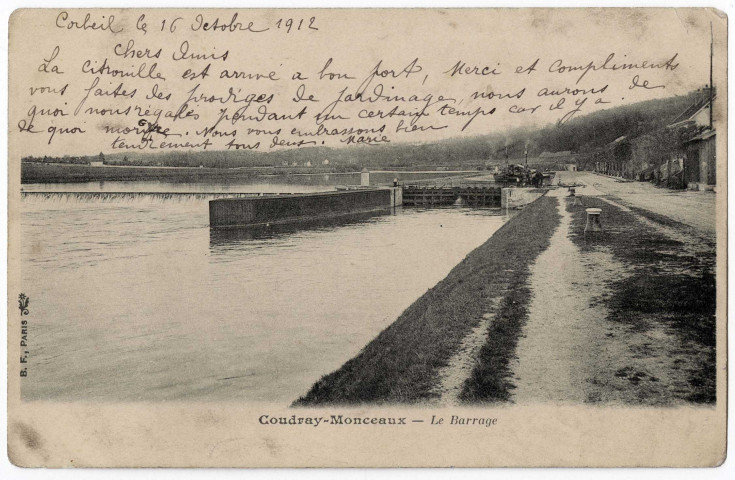 Corbeil le 16 Octobre 1912
Chers Amis
La Citrouille est arrivé a bon port, Merci et compliments
vous faites des prodiges de jardinage, nous aurons de
quoi nous régaler pendant un certain temps car il y a
de quoi mordre. Nous vous embrassons bien
tendrement tous deux. Marie
B. F., PARIS
Coudray-Monceaux — Le Barrage